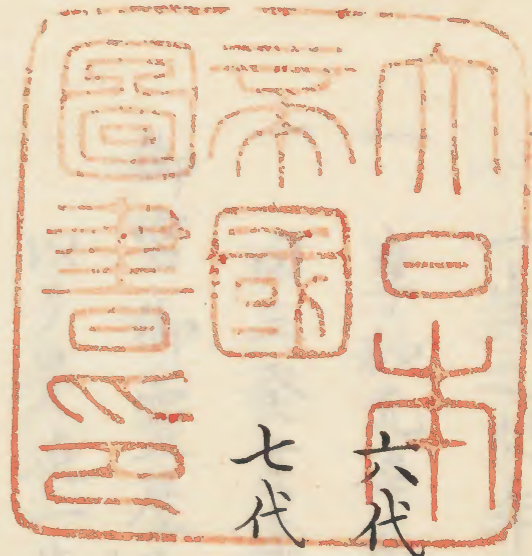 大日本
帝國
圖書印
六代
七代